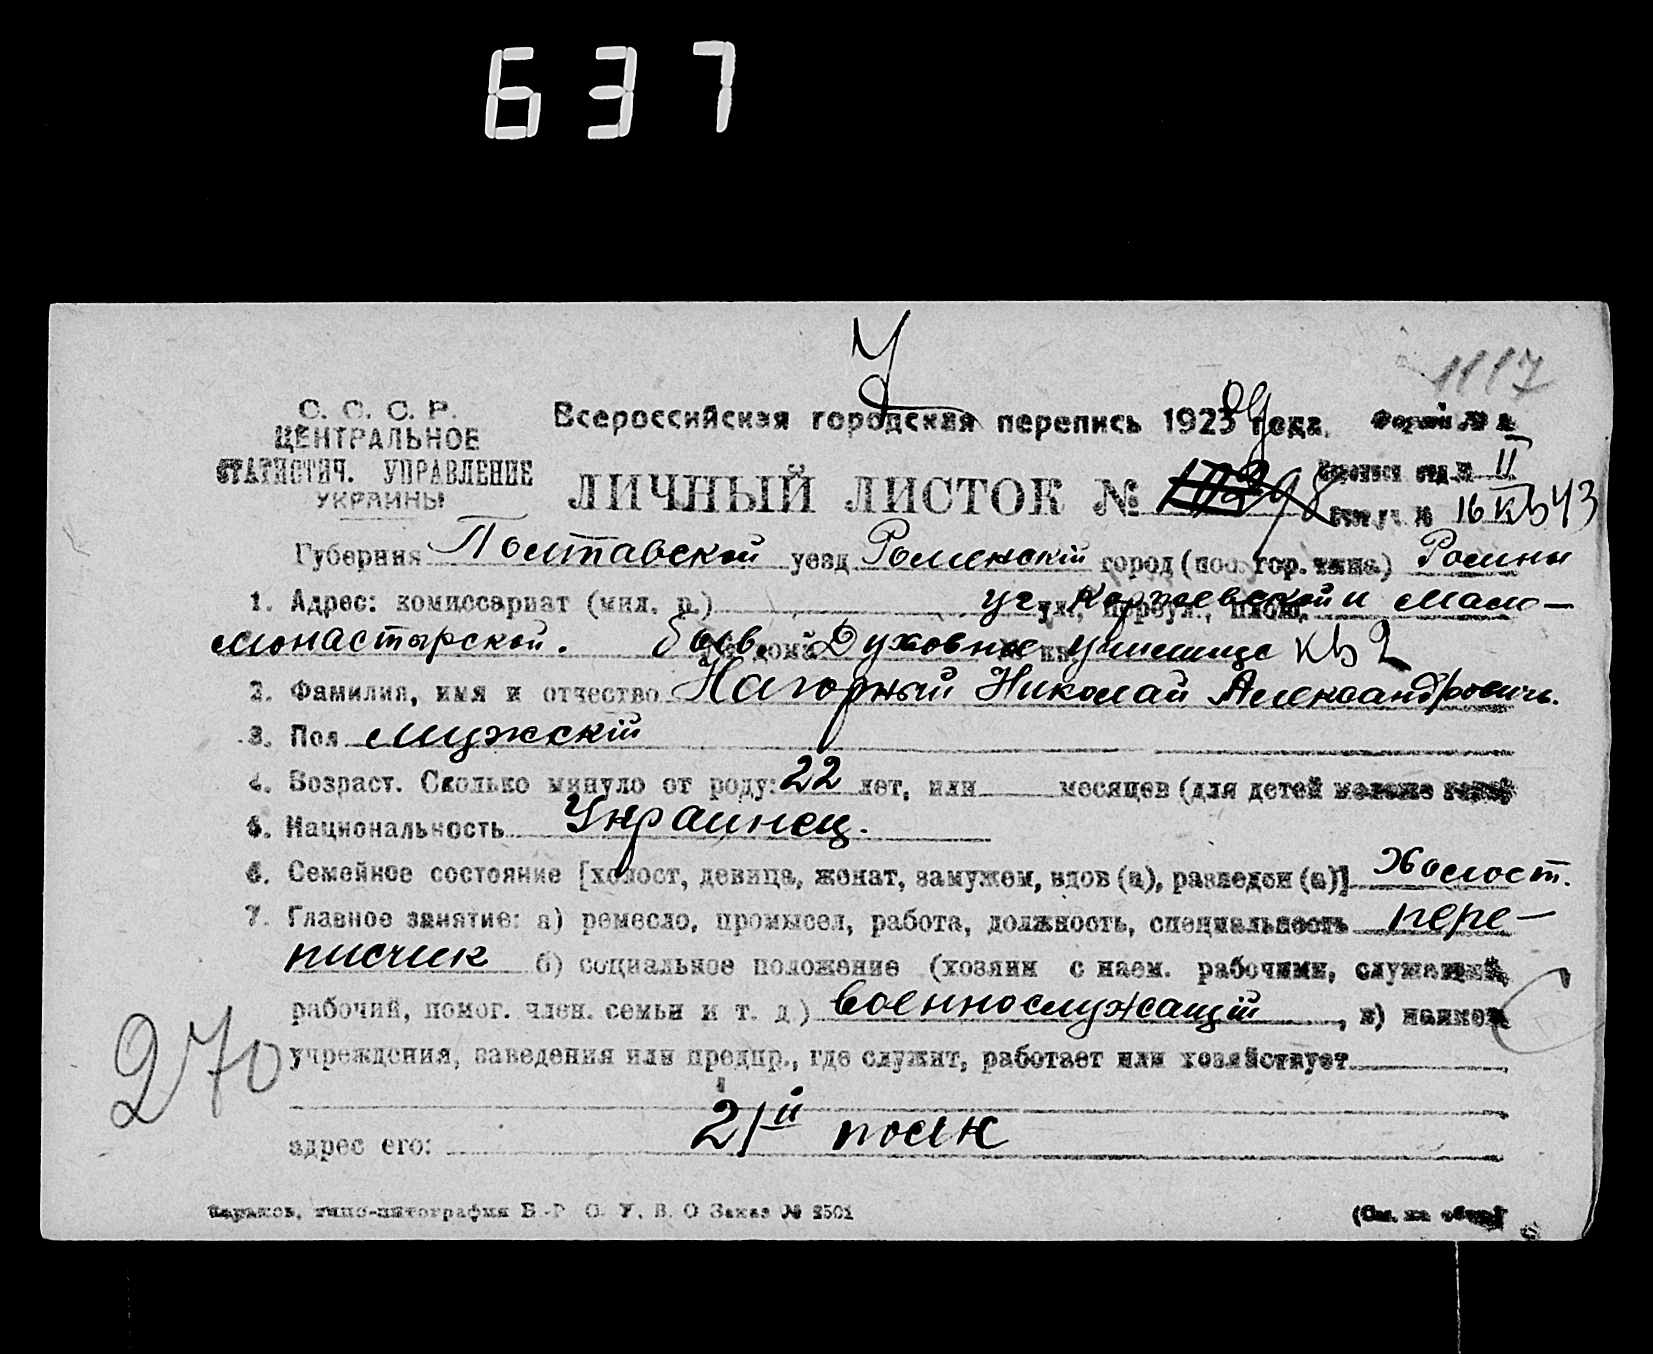 637
1117
С. С. С. Р.
ЦЕНТРАЛЬНОЕ
СТАТИСТИЧ. УПРАВЛЕНИЕ
УКРАИНЫ
Всероссийская городская перепись 1923 года.
Форма №
ЛИЧНЫЙ ЛИСТОК № 98
отд. № II
№ 16 кв 43
Губерния Полтавской уезд Роменскій город (пос. гор. типа) Ромны
1. Адрес: комиссариат (мил. р.) уг ул., переул., площ. Коржевской и Мало-
монастырской. дома Духовное училище кв 2
2. Фамилия, имя и отчество Нагорный Николай Александрович.
3. Пол мужскій
4. Возраст. Сколько минуло от роду: 22 лет, или месяцев (для детей моложе года)
5. Национальность Украинец.
6. Семейное состояние [холост, девица, женат, замужем, вдов (а), разведен (а)] Холост.
7. Главное занятие: а) ремесло, промысел, работа, должность, специальность пере-
писчик б) социальное положение (хозяин с наем. рабочими, служащий,
рабочий, помог. член. семьи и т. д.) военнослужащій, в) наимен.
учреждения, заведения или предпр., где служит, работает или хозяйствует
270
21й полк
адрес его:
Харьков, типо-литография В.-Р. О. У. В. О Заказ № 2501
(См. на обор.)